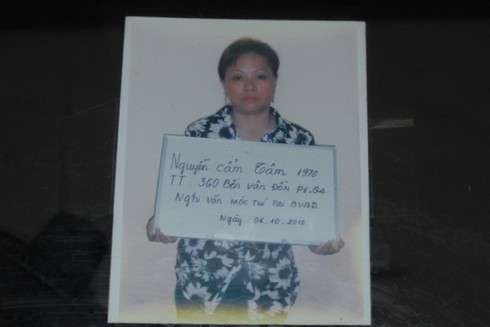 Nguyễn Cẩm Tâm 1970
TT: 360 Bến Vân Đồn P1-Q4
Nghi vấn móc túi tại BVBD.
Ngày: 06.10.2010